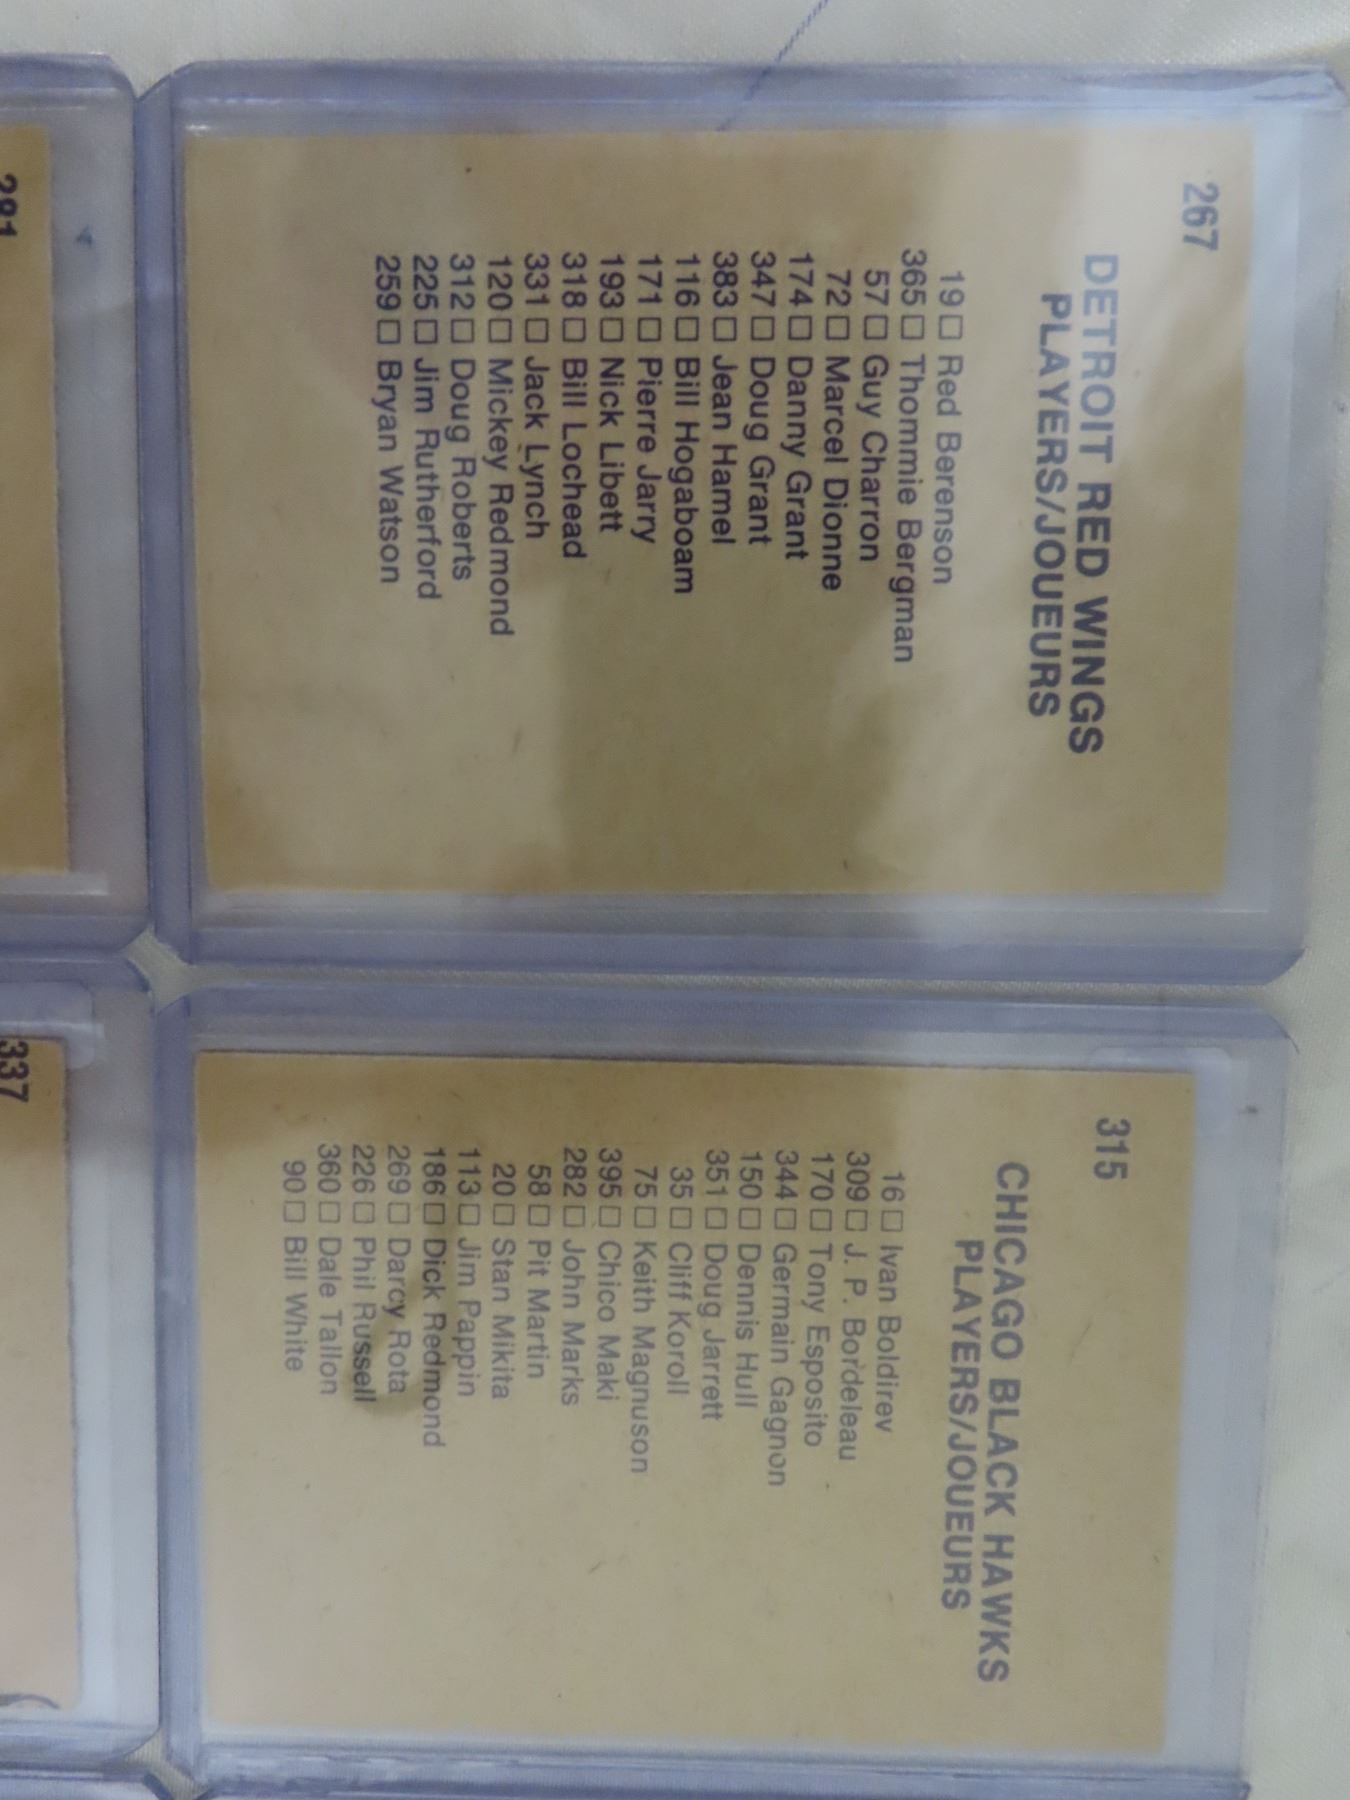 267
DETROIT RED WINGS
PLAYERS/JOUEURS
19□ Red Berenson
365□ Thommie Bergman
57□ Guy Charron
72□ Marcel Dionne
174□ Danny Grant
347□ Doug Grant
383□ Jean Hamel
116□ Bill Hogaboam
171□ Pierre Jarry
193□ Nick Libett
318□ Bill Lochead
331□ Jack Lynch
120□ Mickey Redmond
312□ Doug Roberts
225□ Jim Rutherford
259□ Bryan Watson
315
CHICAGO BLACK HAWKS
PLAYERS/JOUEURS
16□ Ivan Boldirev
309□ J. P. Bordeleau
170□ Tony Esposito
344□ Germain Gagnon
150□ Dennis Hull
351□ Doug Jarrett
35□ Cliff Koroll
75□ Keith Magnuson
395□ Chico Maki
282□ John Marks
58□ Pit Martin
20□ Stan Mikita
113□ Jim Pappin
186□ Dick Redmond
269□ Darcy Rota
226□ Phil Russell
360□ Dale Tallon
90□ Bill White
337